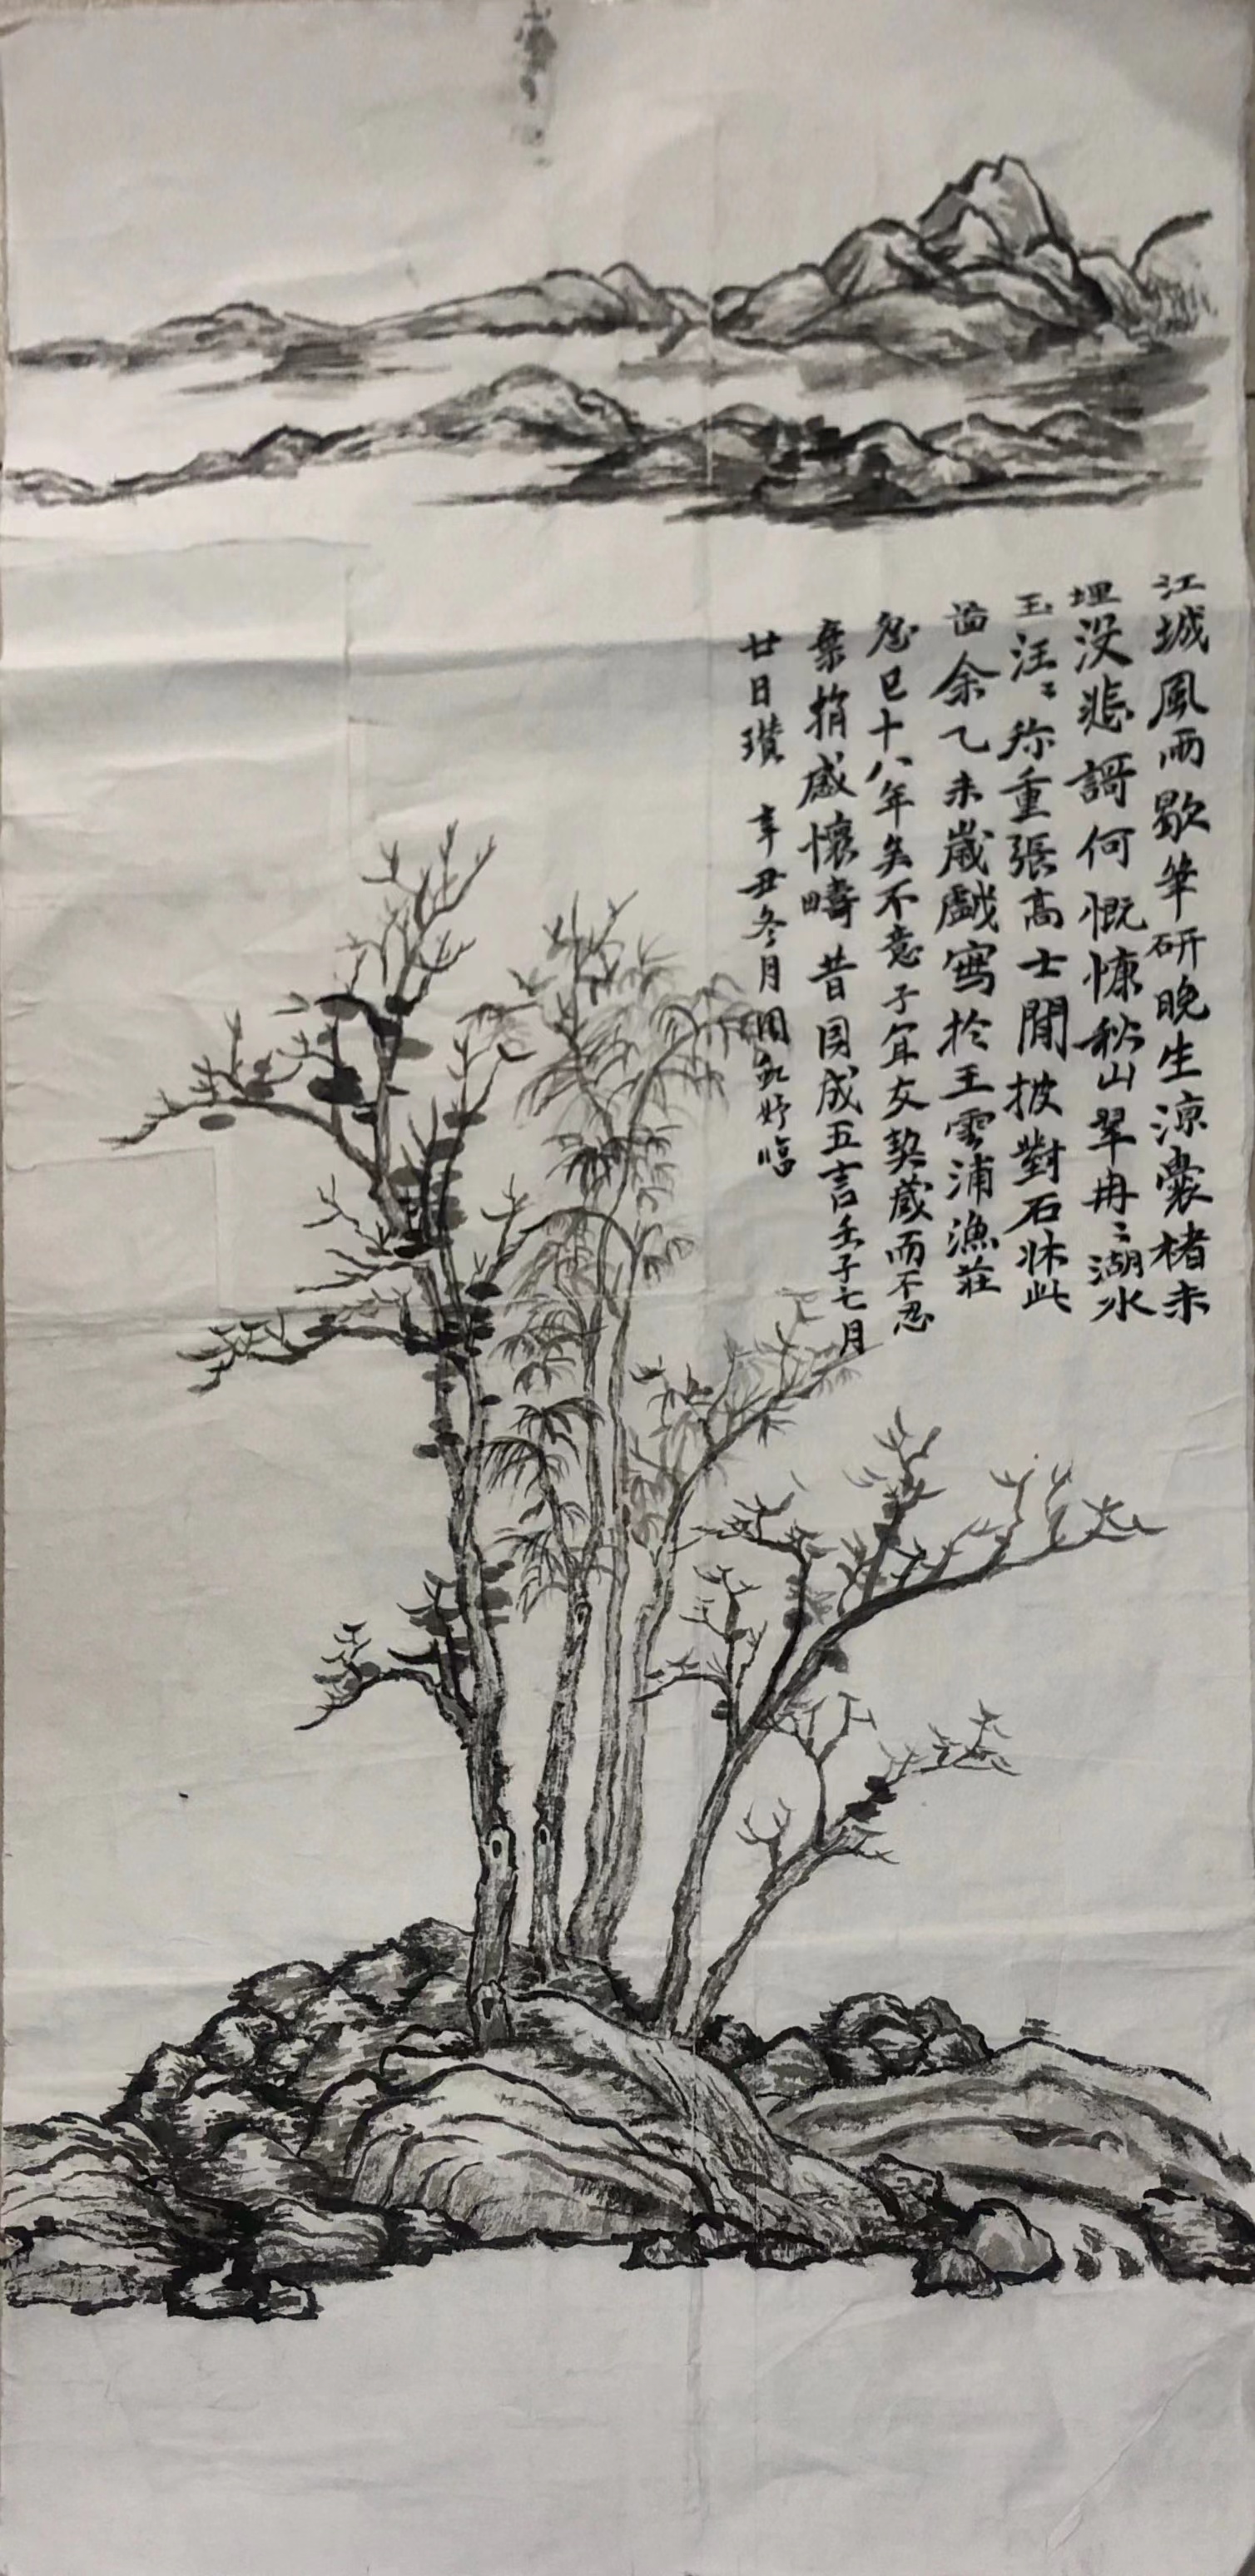 江城風雨歇筆研晚生涼囊楮未
埋没悲謌何慨慷秋山翠冉〻湖水
玉汪〻珎重張高士閒披對石牀此
啚余乙未嵗戲寫於王雲浦漁莊
忽已十八年矣不意子宜友契蔵而不忍
棄捐感懷疇昔因成五言壬子七月
廿日瓚 辛丑冬月周妤臨